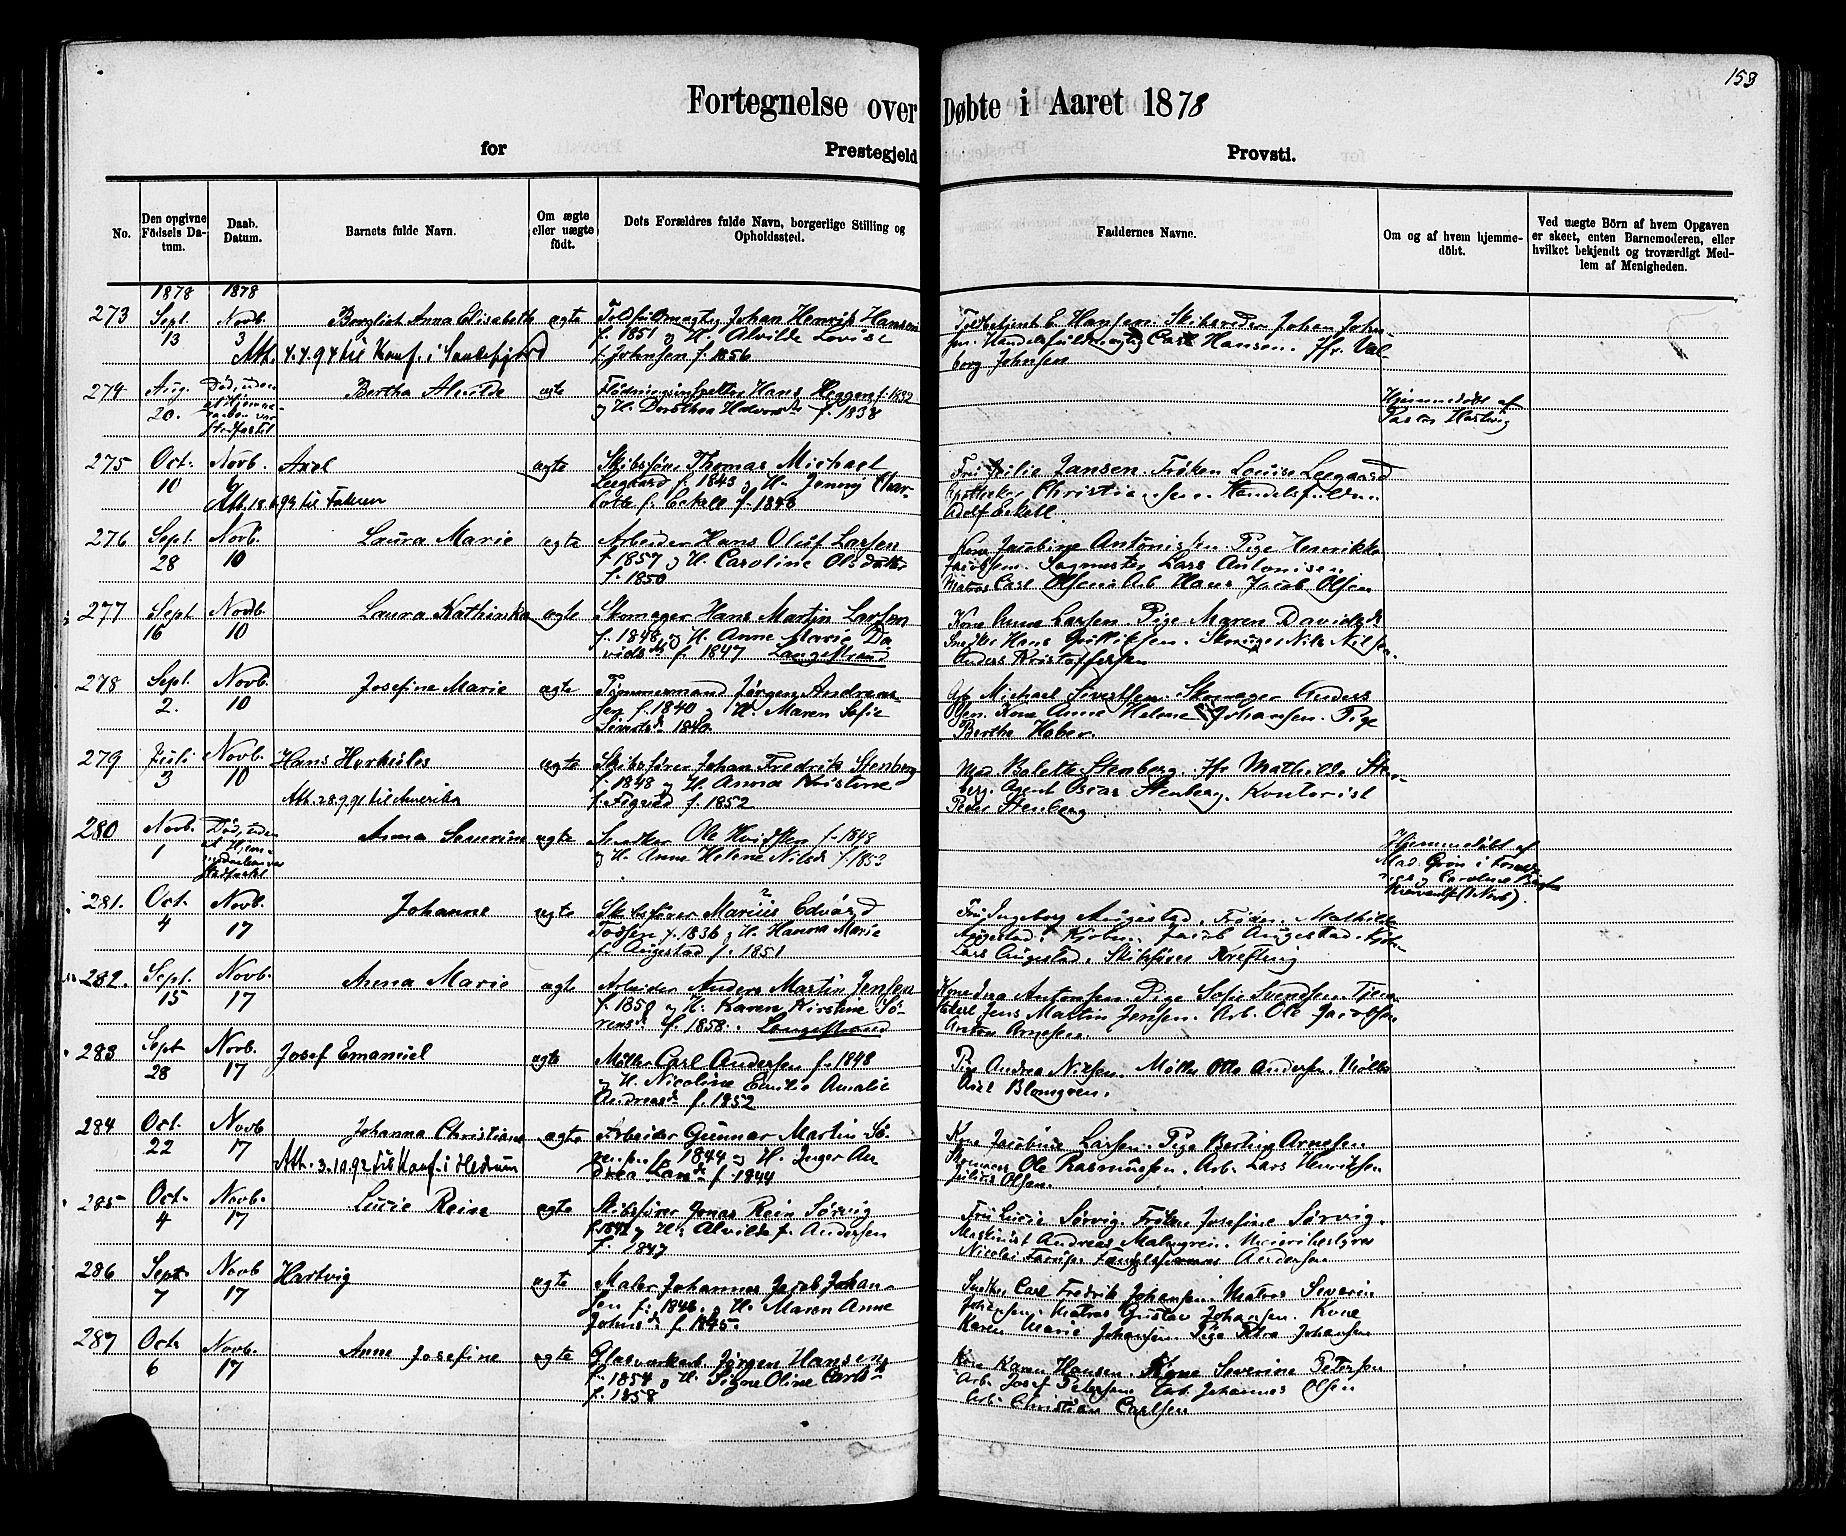 153
Fortegnelse over Døbte i Aaret 1878
for Prestegjeld Provsti.
No.
Den opgivne Födsels Datum.
Daab. Datum.
Barnets fulde Navn.
Om ægte eller uægte födt.
Dets Forældres fulde Navn, borgerlige Stilling og Opholdssted.
Faddernes Navne.
Om og af hvem hjemmedöbt.
Ved uægte Börn af hvem Opgaven er skeet, enten Barnemoderen, eller hvilket bekjendt og troværdigt Medlem af Menigheden.
1878 1878
273 Sept. 13 Novb. 3 Anna Elisabeth ægte
Johan Henrik Hansen
f. 1851 og H. Alvilde Lovise
f. Johnsen f. 1856
Att. 4.4.94 til Konf. i Sandefjord
E. Hansen. Johan John-
sen. Carl Hansen. Jfr. Val-
borg Johnsen
274 Aug. 20. Bertha Alvilde ægte
Hans Heggen f. 1832
og H. Dorothea f. 1838
Hjemmedöbt af
Pastor Hartvig
275 Oct. 10 Novb. Axel ægte
Skibsfører Thomas Michael
Leegaard f. 1843 og H. Jenny Char-
lotte f. f. 1846
Jansen. Frøken Louise Leegaard
276 Sept. 28 Novb. 10 Laura Marie ægte
Arbeider Hans Oluf Larsen
f. 1857 og H. Caroline Olsdatter
f. 1850
Kone Jacobine Antonisen. Pige Henrikke
Jacobsen. Lars Antonisen
Matros Carl Olsen. Arb. Hans Jacob Olsen
277 Sept 16 Novb. 10 Laura Kathinka ægte
Skomager Hans Martin Larsen
f. 1846, og H. Anne Marie Da-
vidsd. f. 1847 Langestrand
Kone Larsen. Pige Maren Davidsd.
Snedker Hans Nils Nilsen.
Anders Kristoffersen
278 Sept. 2. Novb. 10 Josefine Marie ægte
Tømmermand Jørgen Andrea-
sen f. 1840 og H. Maren Sofie
1840
Arb. Michael Sivertsen. Skomager Anders
Olsen. Kone Anne Helene Johansen. Pige
Bertha
279 Juli 3 Novb. 10 Hans Herkules ægte
Skibsfører Johan Fredrik Stenberg
f. 1848 og H. Anna Kristine
f. 1852
Att. 28.9.91 til Amerika
Mad. Bolette Stenberg. Jfr. Mathilde Sten-
berg. Agent Oscar Stenberg. Kontorist
Peder Stenberg
280 Novb. 1 Anna Severine ægte
Snedker Ole f. 1849
og H. Anne Helene Nilsd. f. 1853
Hjemmedöbt af
Mad. Grøn i
281. Oct. 4 Novb. 17 Johanne ægte
Skibsfører Marius Edvard
f. 1836 og H. Hanna Marie
f. Augestad f. 1851
Fru Ingeborg Augestad. Frøken Mathilde
Augestad. Kjøbm. Jacob Augestad. Kjøb-
Lars Augestad. Skibsfører Krefting
282. Sept. 15 Novb. 17 Anna Marie ægte
Arbeider Anders Martin Jensen
f. 1850 og H. Karen Kirstine Sö-
rensd. f. 1858. Langestrand
Kone Antonsen. Pige Sofie Svendsen.
Jens Martin Jensen. Arb. Ole Jacobsen.
Anton Arnesen.
283 Sept 28 Novb. 17 Josef Emanuel ægte
Møller Carl Andersen f. 1848
og H. Nicoline Emilie Amalie
Andreasd. f. 1852
Pige Andrea Nilsen. Møller Otto Andersen. Møller
Axel Blomgren.
284 Oct. 22 Novb. 17 Johanna Christiane ægte
Arbeider Gunnar Martin Sö-
rensen f. 1844 og H. Inger An-
drea f. 1844
Att. 3.10.92 til Konf. i Hedrum
Kone Jacobine Larsen. Pige Berthine Arnesen
Ole Rasmussen. Arb. Lars Henriksen
Julius Olsen.
285 Oct. 4 Novb. 17 Lucie Reine ægte
Skibsfører Jonas Rein Sørvig
og H. Alvilde f. Andersen
f. 1847
Fru Lucie Sørvig. Frøken Josefine Sørvig.
Maskinist Andreas Malmgren.
Nicolai Andersen
286 Sept. 7 Novb 17 Hartvig ægte
Maler Johannes Jacob Johan-
sen f. 1846. og H. Maren Anne
Johnsd. f. 1845.
Snedker Carl Fredrik Johansen. Matros Severin
Johansen. Matros Gustav Johansen. Kone
Karen Marie Johansen. Pige Petra Johansen
287 Oct. 6 Novb. 17 Anne Josefine ægte
Glasværksarb. Jørgen Hansen
f. 1854 og H. Signe Oline Carlsd.
f. 1858
Kone Karen Hansen. Kone Severine Petersen
Arb. Josef Petersen Arb. Johannes Olsen
Arb. Christian Carlsen